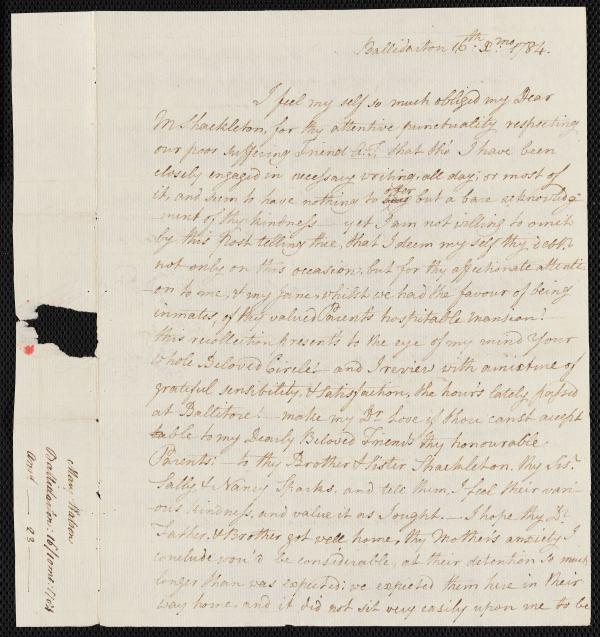 Ballidarton 16th 2mo 1784.
I feel my self so much obliged my Dear
M Shackleton, for thy attentive punctuality respecting
our poor suffering Friend A:T, that tho' I have been
closely engaged in necessary writing all day, or most of
it, and seem to have nothing to offer but a bare acknowledg-
ment of thy kindness — yet I am not willing to omit
by this Post telling thee, that I deem my self thy debtr.
not only on this occasion, but for thy affectionate attenti-
on to me, & my Jane, whilst we had the favour of being
inmates of thy valued Parents hospitable mansion! —
this recollection presents to the eye of my mind Your
whole Beloved Circle! — and I review with a mixture of
grateful sensibility, & satisfaction, the hours lately passed
at Ballitore! — make my Dr. Love if thou canst accept
able to my Dearly Beloved Friends thy honourable
Parents: — to thy Brother & Sister Shackleton, thy Sisr.
Sally & Nancy Sparks, and tell them, I feel their vari-
ous kindness, and value it as I ought. — I hope thy Dr.
Father, & Brother got well home, thy Mother's anxiety I
conclude wou'd be considerable, at their detention so much
longer than was expected: we expected them here in their
way home, and it did not sit very easily upon me to be
Mary Watson
Ballidarton: 16/ 1784
Answd 23